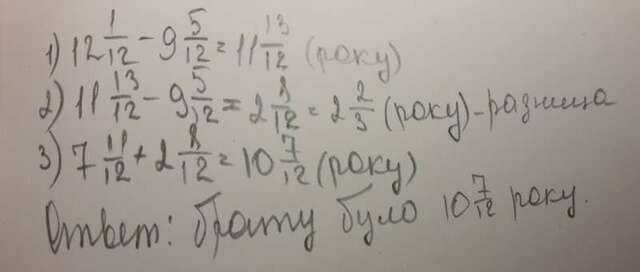 1) 12 1/12 - 9 5/12 = 11 13/12 (року)
2) 11 13/12 - 9 5/12 = 2 8/12 = 2 2/3 (року) - разница
3) 7 11/12 + 2 8/12 = 10 7/12 (року)
Ответ: брату було 10 7/12 року.